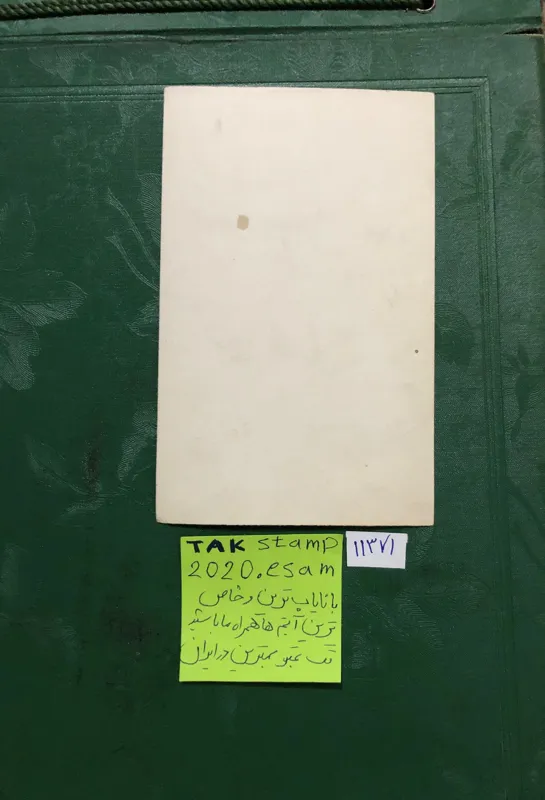 TAK stamp
2020.esam
با نایاب ترین و خاص
ترین آیتم ها همراه ما باشید
تک تمبر بهترین در ایران
۱۱۳۷۱